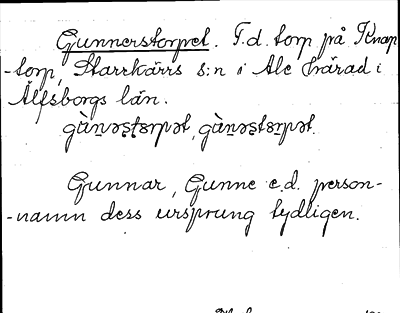 Gunnerstorpet. F.d. torp på Knap
-torp, Starrkärrs s:n i Ale härad i
Älfsborgs län.
gùnəʂʈɔrpət, gùnəʂʈɔrpət.
Gunnar, Gunne e.d. person-
-namn dess ursprung tydligen.